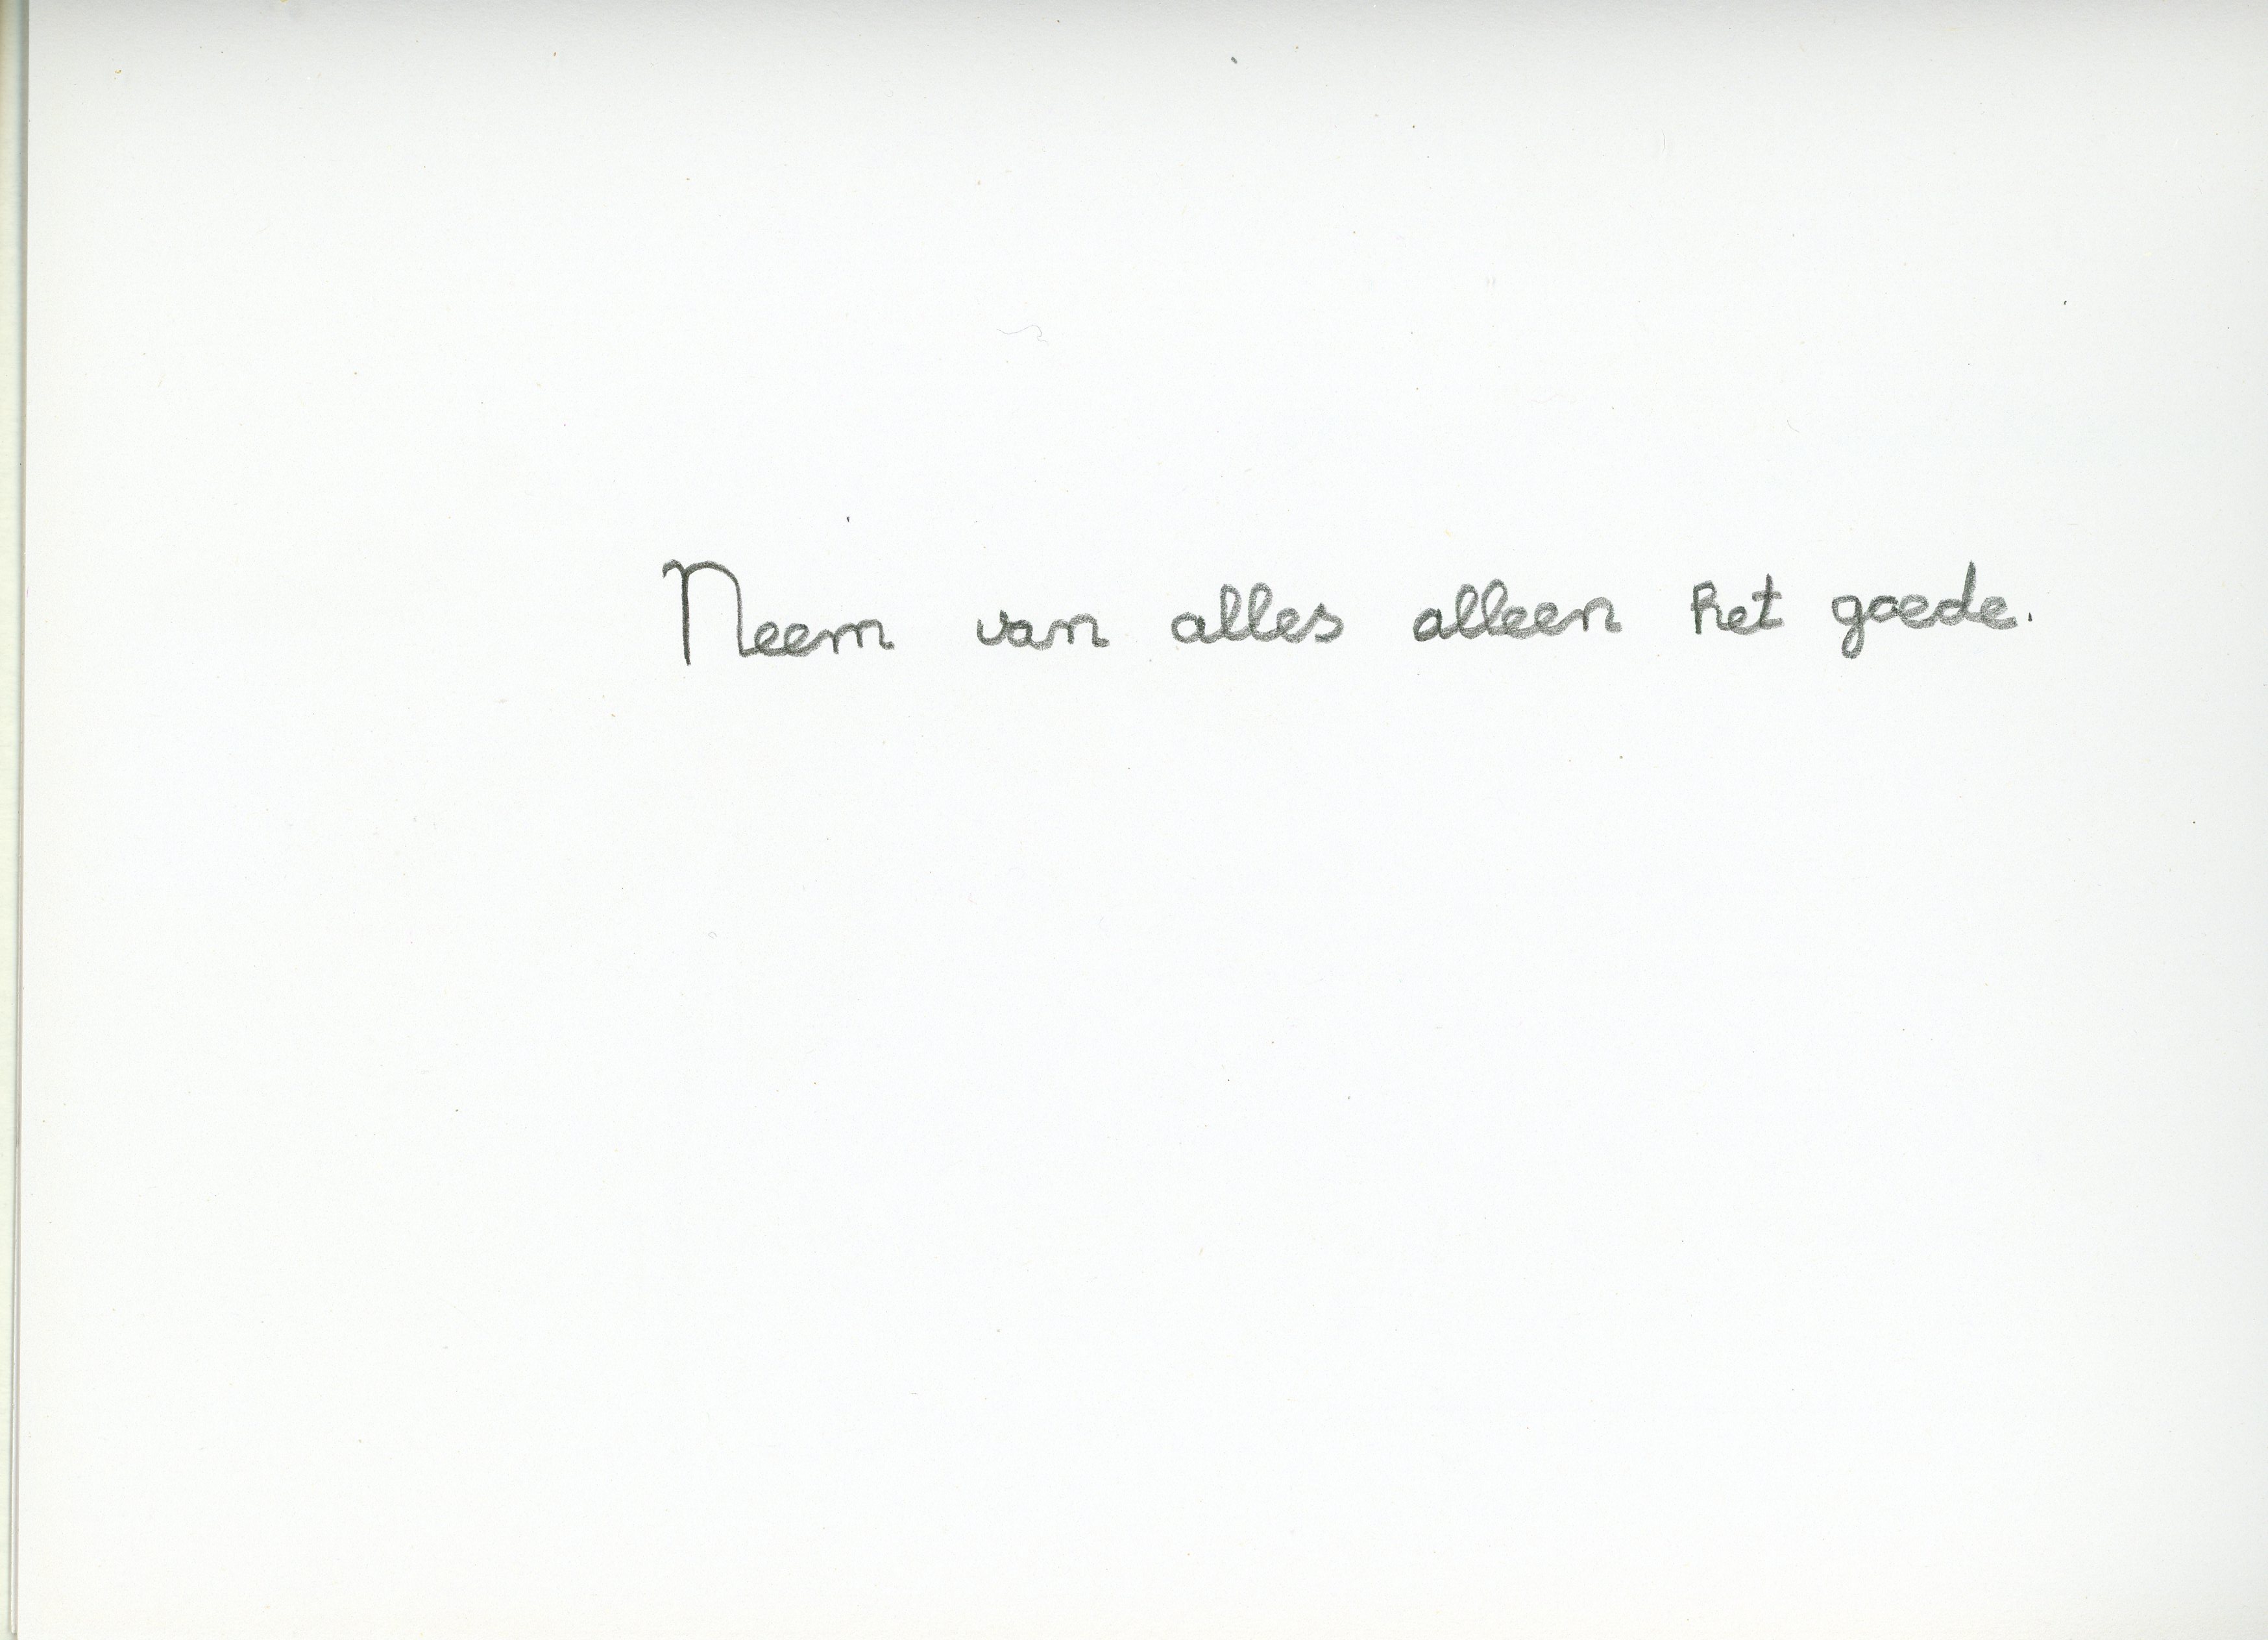 Neem van alles alleen het goede.